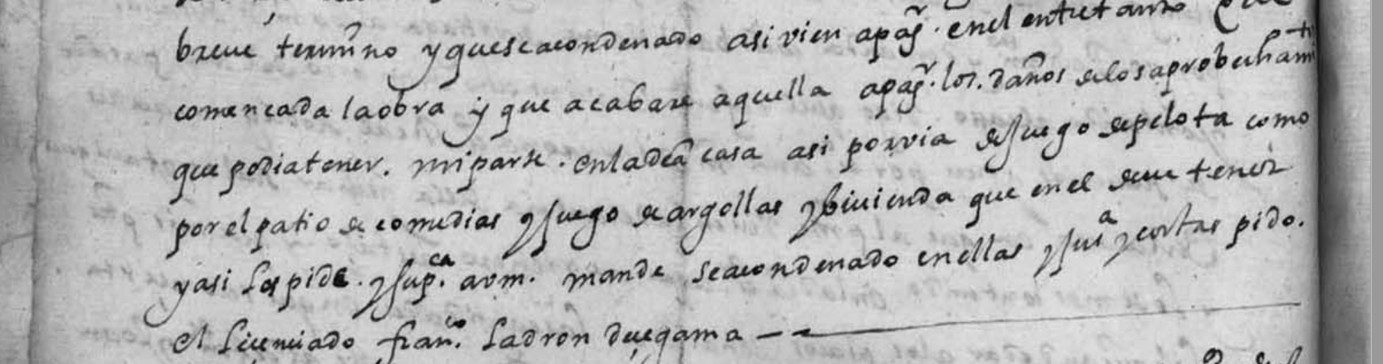 breue termino y que sea condenado asi vien a pagr. en el entretanto
comencada la obra y que acabare aquella a pagr. los. daños de los aprobechamto
que podia tener. mi parte. en la dcha casa asi por via de Juego de pelota como
por el patio de comedias y Juego de argollas y biuienda que en el deue tener
y asi los pide. y supca. a vm. mande sea condenado en ellas y Jusa y costas pido.
el Licenciado franco. Ladron de çegama